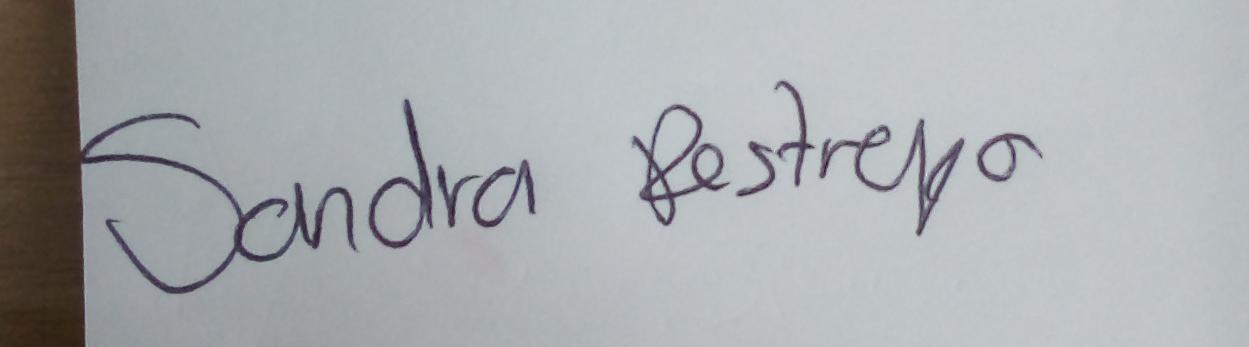 Sandra Restrepo